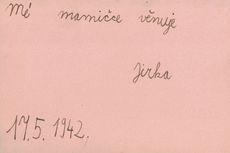 Mé mamičce věnuje
Jirka
17.5. 1942.